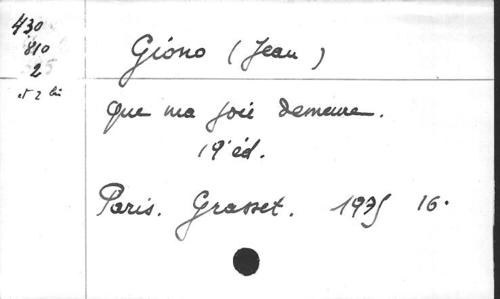 430
810
2
et 2 bis
Giono (Jean)
Que ma joie demeure.
19e éd.
Paris. Grasset. 1935 16.